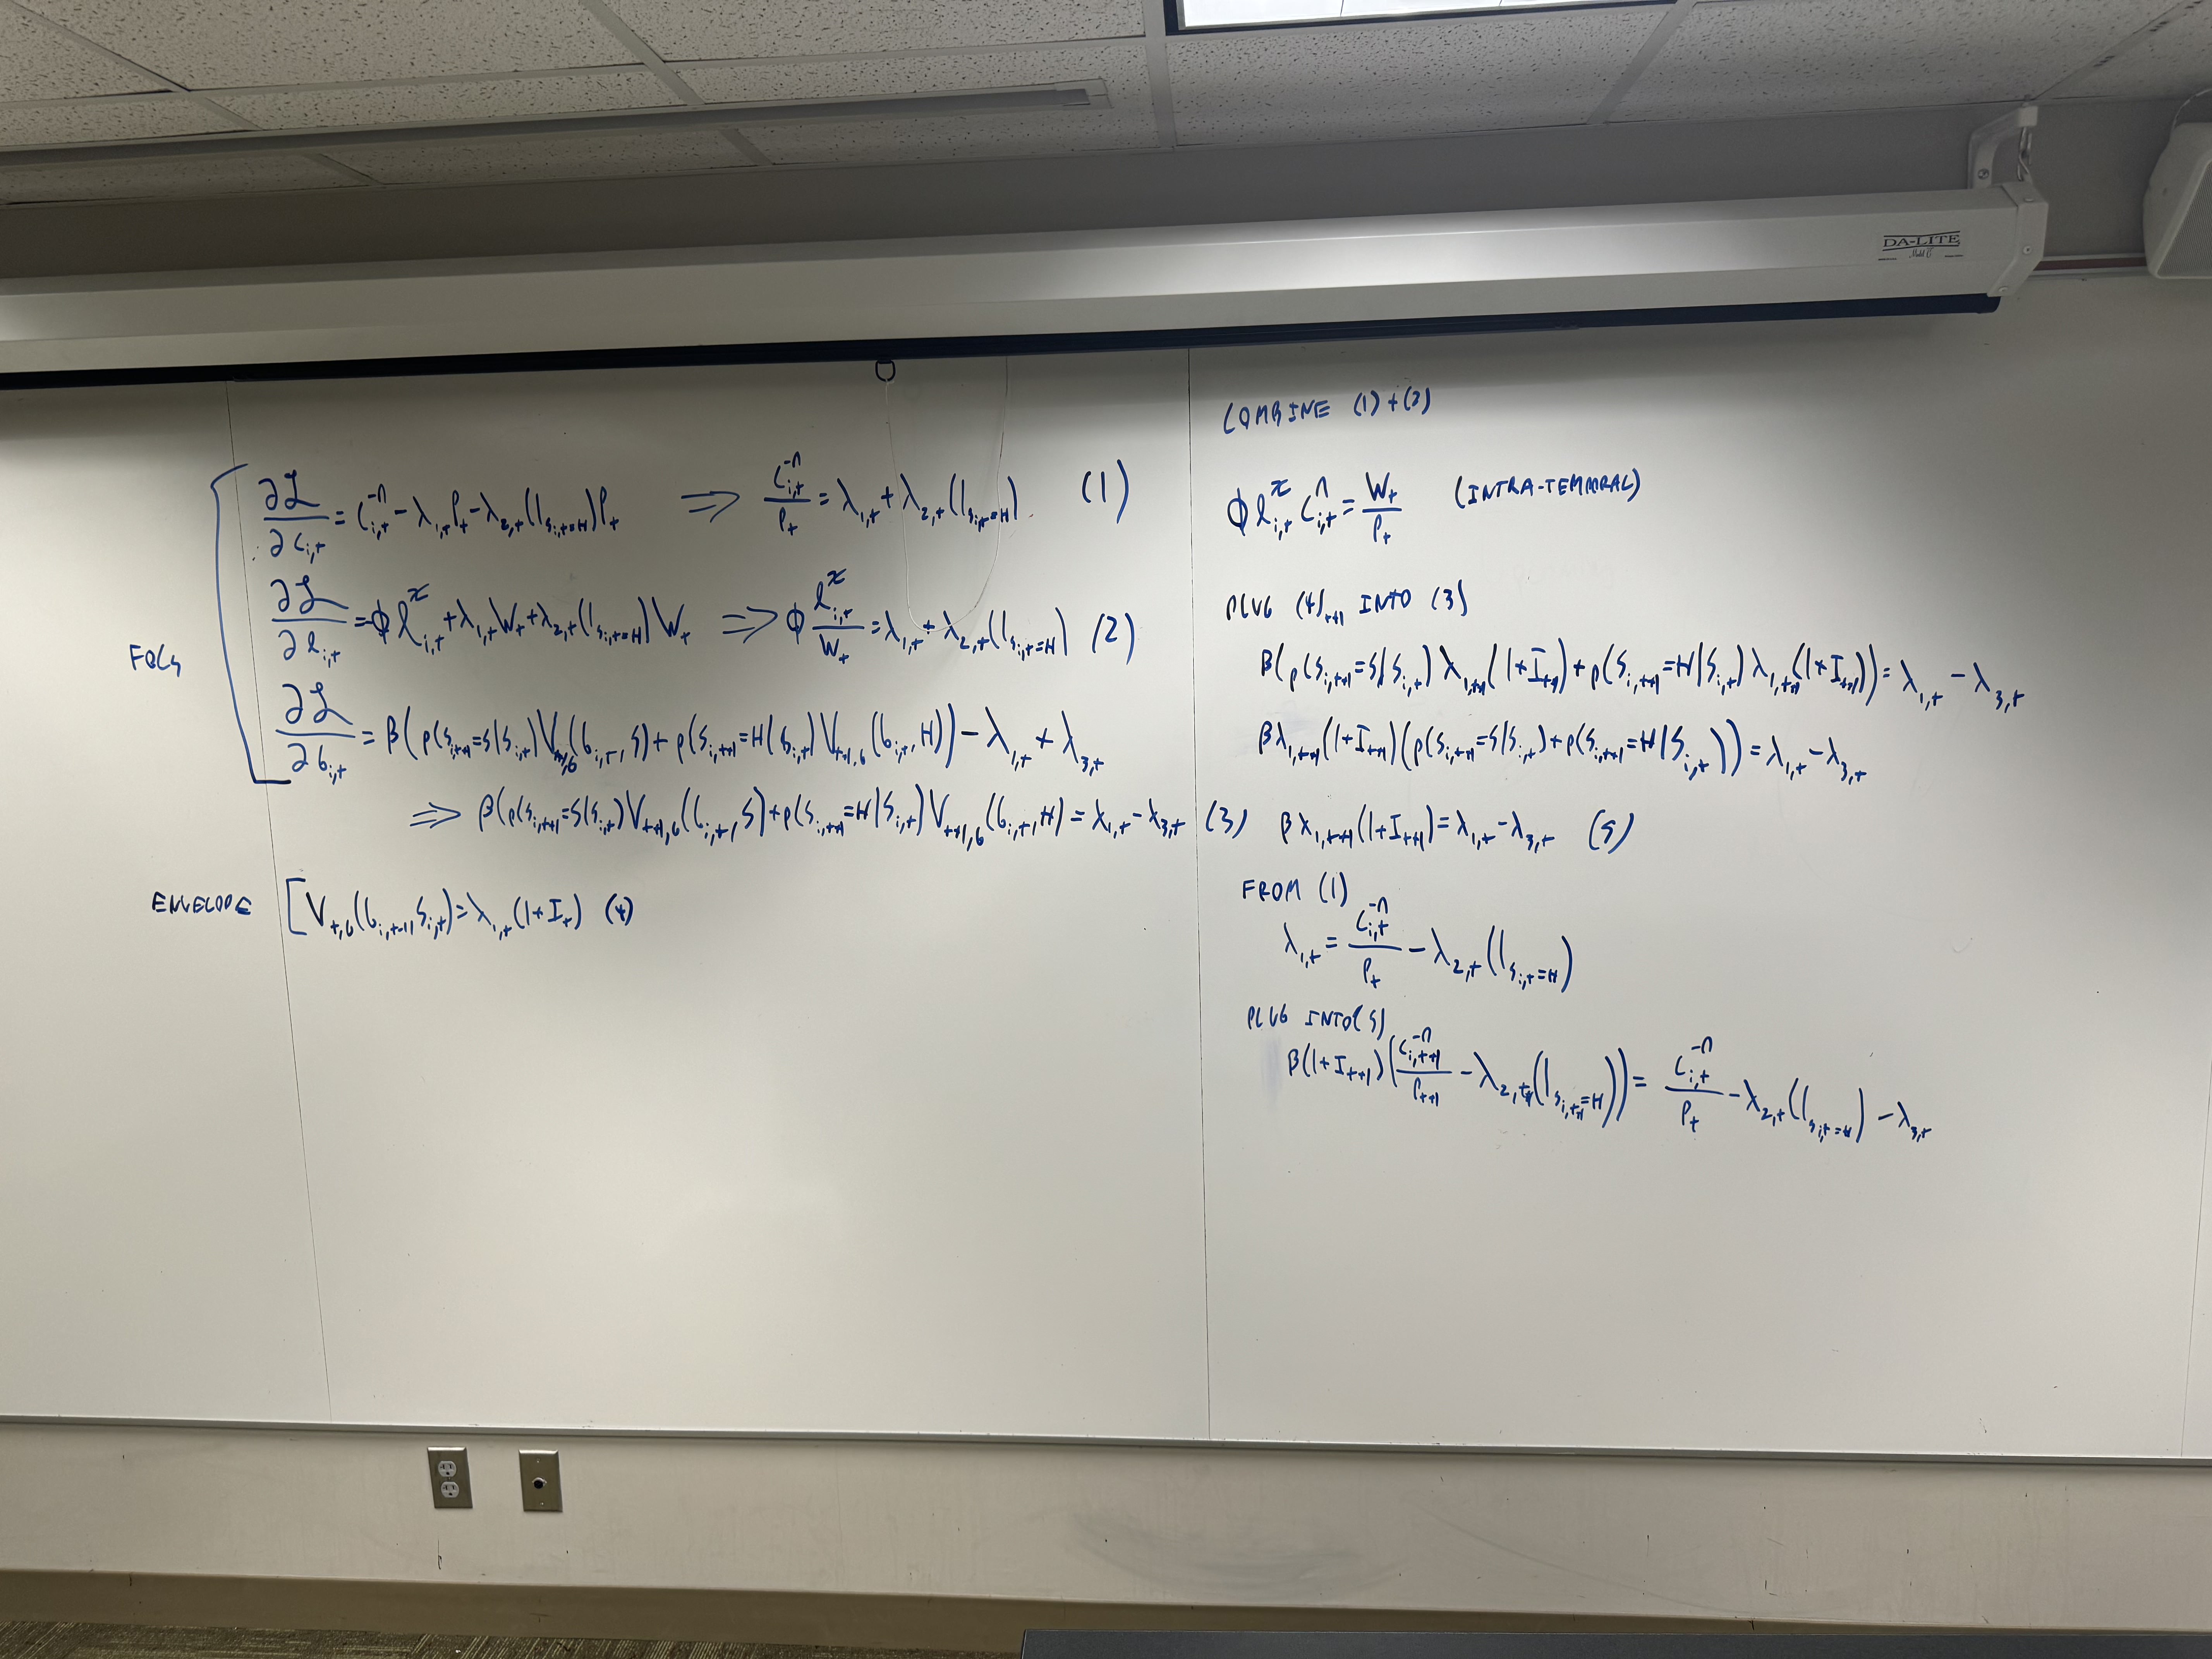 FOCs
∂ℒ/∂C_{i,t} = C_{i,t}^{-η} - λ_{1,t}P_t - λ_{2,t}(1_{s_{i,t}=H})P_t ⟹ C_{i,t}^{-η}/P_t = λ_{1,t} + λ_{2,t}(1_{s_{i,t}=H}) (1)
∂ℒ/∂l_{i,t} = ϕ l_{i,t}^χ + λ_{1,t}W_t + λ_{2,t}(1_{s_{i,t}=H})W_t ⟹ ϕ l_{i,t}^χ/W_t = λ_{1,t} + λ_{2,t}(1_{s_{i,t}=H}) (2)
∂ℒ/∂b_{i,t} = β(p(s_{i,t+1}=S|s_{i,t})V_{t+1,b}(b_{i,t}, S) + p(s_{i,t+1}=H|s_{i,t})V_{t+1,b}(b_{i,t}, H)) - λ_{1,t} + λ_{3,t}
⟹ β(p(s_{i,t+1}=S|s_{i,t})V_{t+1,b}(b_{i,t}, S) + p(s_{i,t+1}=H|s_{i,t})V_{t+1,b}(b_{i,t}, H) = λ_{1,t} - λ_{3,t} (3)
ENVELOPE [V_{t,b}(b_{i,t-1}, s_{i,t}) = λ_{1,t}(1+I_t) (4)
COMBINE (1)+(2)
ϕ l_{i,t}^χ C_{i,t}^η = W_t/P_t (INTRA-TEMPORAL)
PLUG (4)_{t+1} INTO (3)
β(p(s_{i,t+1}=S|s_{i,t}) λ_{1,t+1}(1+I_{t+1}) + p(s_{i,t+1}=H|s_{i,t}) λ_{1,t+1}(1+I_{t+1})) = λ_{1,t} - λ_{3,t}
βλ_{1,t+1}(1+I_{t+1})(p(s_{i,t+1}=S|s_{i,t}) + p(s_{i,t+1}=H|s_{i,t})) = λ_{1,t} - λ_{3,t}
βλ_{1,t+1}(1+I_{t+1}) = λ_{1,t} - λ_{3,t} (5)
FROM (1)
λ_{1,t} = C_{i,t}^{-η}/P_t - λ_{2,t}(1_{s_{i,t}=H})
PLUG INTO (5)
β(1+I_{t+1})(C_{i,t+1}^{-η}/P_{t+1} - λ_{2,t+1}(1_{s_{i,t+1}=H})) = C_{i,t}^{-η}/P_t - λ_{2,t}(1_{s_{i,t}=H}) - λ_{3,t}
DA-LITE